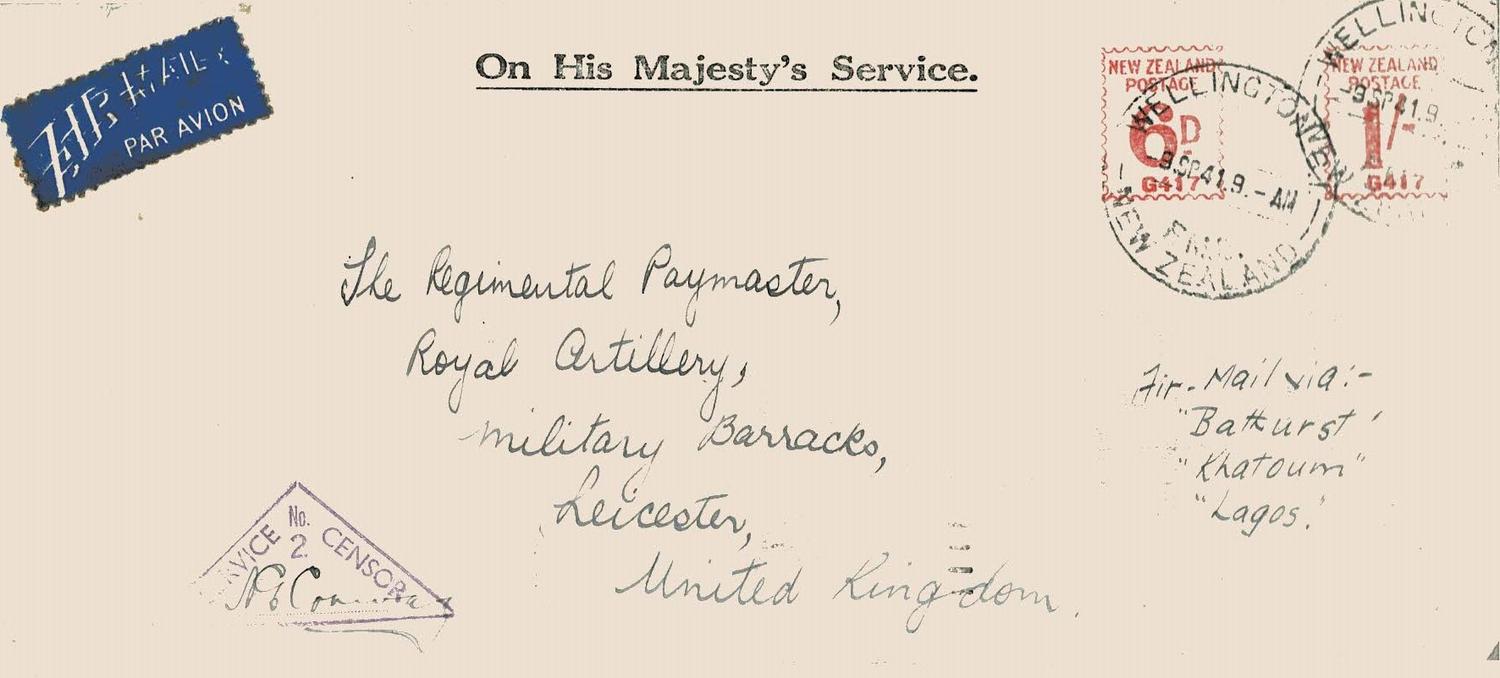 AIR MAIL
PAR AVION
On His Majesty's Service.
NEW ZEALAND
POSTAGE
6D
G417
NEW ZEALAND
POSTAGE
1/-
G417
WELLINGTON
-9 SP 41.9.-AM
NEW ZEALAND
WELLINGTON
-9 SP 41.9
NEW
The Regimental Paymaster,
Royal Artillery,
Military Barracks,
Leicester,
United Kingdom.
Air-Mail via:-
"Bathurst'
"Khatoum"
"Lagos.'
No.
2
CENSOR